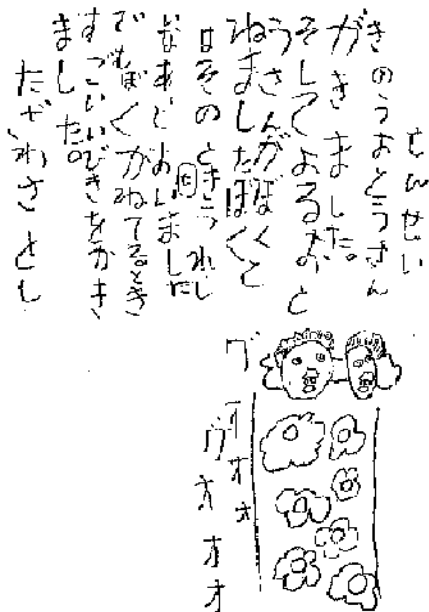 せんせい
きのうおとうさん
がきました。
そしてよるおと
うさんがぼくと
ねました。ぼく
はそのときうれし
いなあとおもいました
でもぼくがねてるとき
すっごいいびきをかき
ました。
たざわさとし
グオオォ
グオオオ